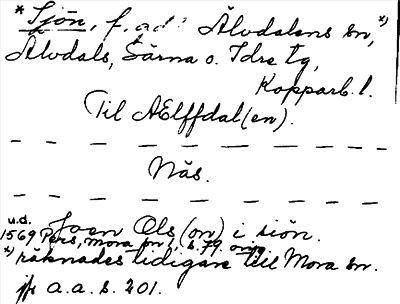 * Sjön, f. gd i Älvdalens sn, x)
Älvdals, Särna o. Idre tg,
Kopparb. l.
Til AElffdal(en).
Näs.
Joen Ols(on) i siön.
u.d.
1569 Pers, Mora fn, s. 79. orig.
x) räknades tidigare till Mora sn.
jfr a.a. s. 201.